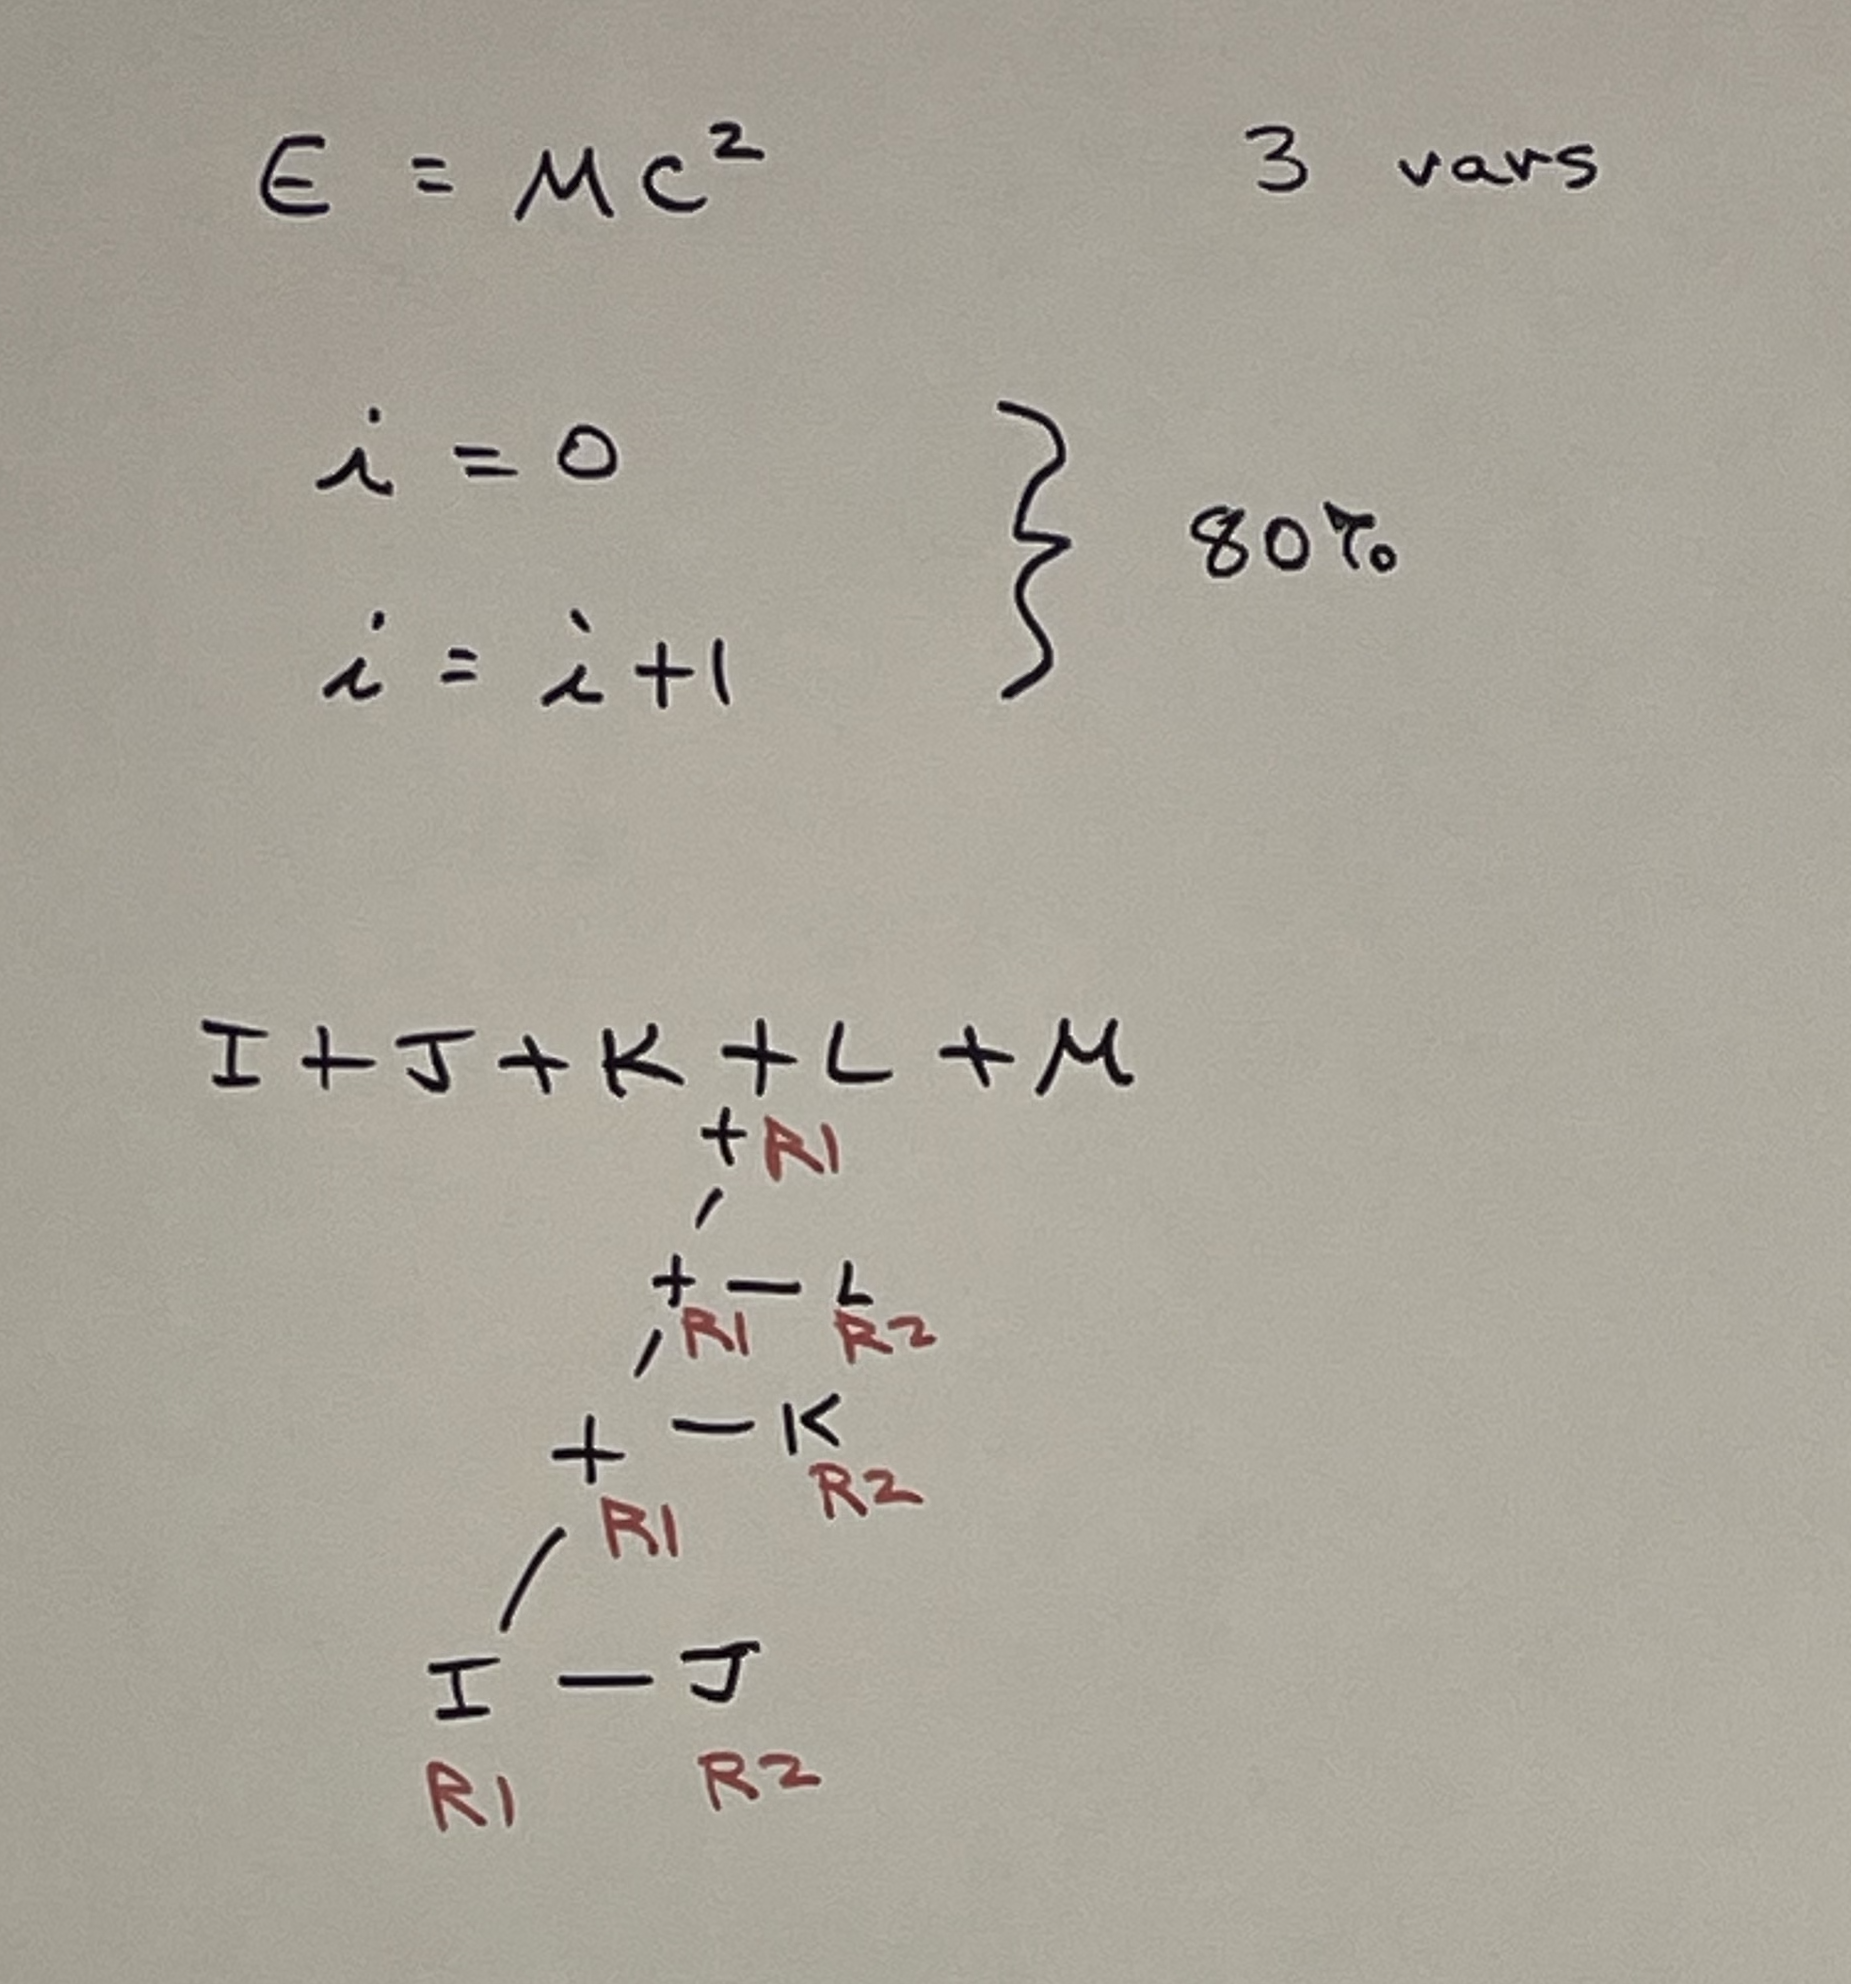 E = MC² 3 vars
i = 0
80%
i = i +1
I + J + K + L + M
+ R1
+ — L
R1 R2
+ — K
R1 R2
I — J
R1 R2